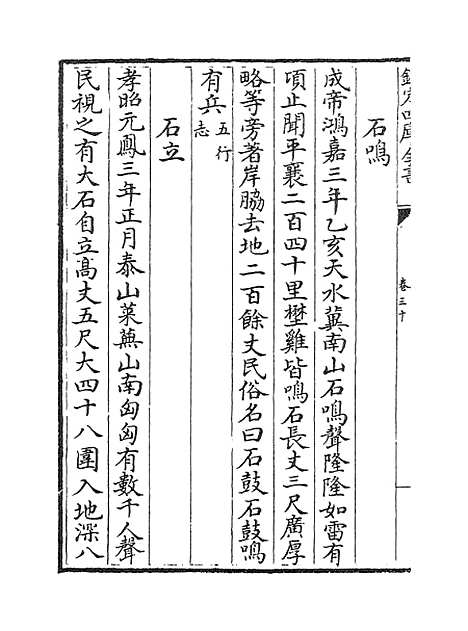 欽定四庫全書
卷三十
石鳴
成帝鴻嘉三年乙亥天水冀南山石鳴聲隆隆如雷有
頃止聞平襄二百四十里壄雞皆鳴石長丈三尺廣厚
略等旁著岸脇去地二百餘丈民俗名曰石鼓石鼓鳴
有兵五行志
石立
孝昭元鳳三年正月泰山萊蕪山南匈匈有數千人聲
民視之有大石自立高丈五尺大四十八圍入地深八